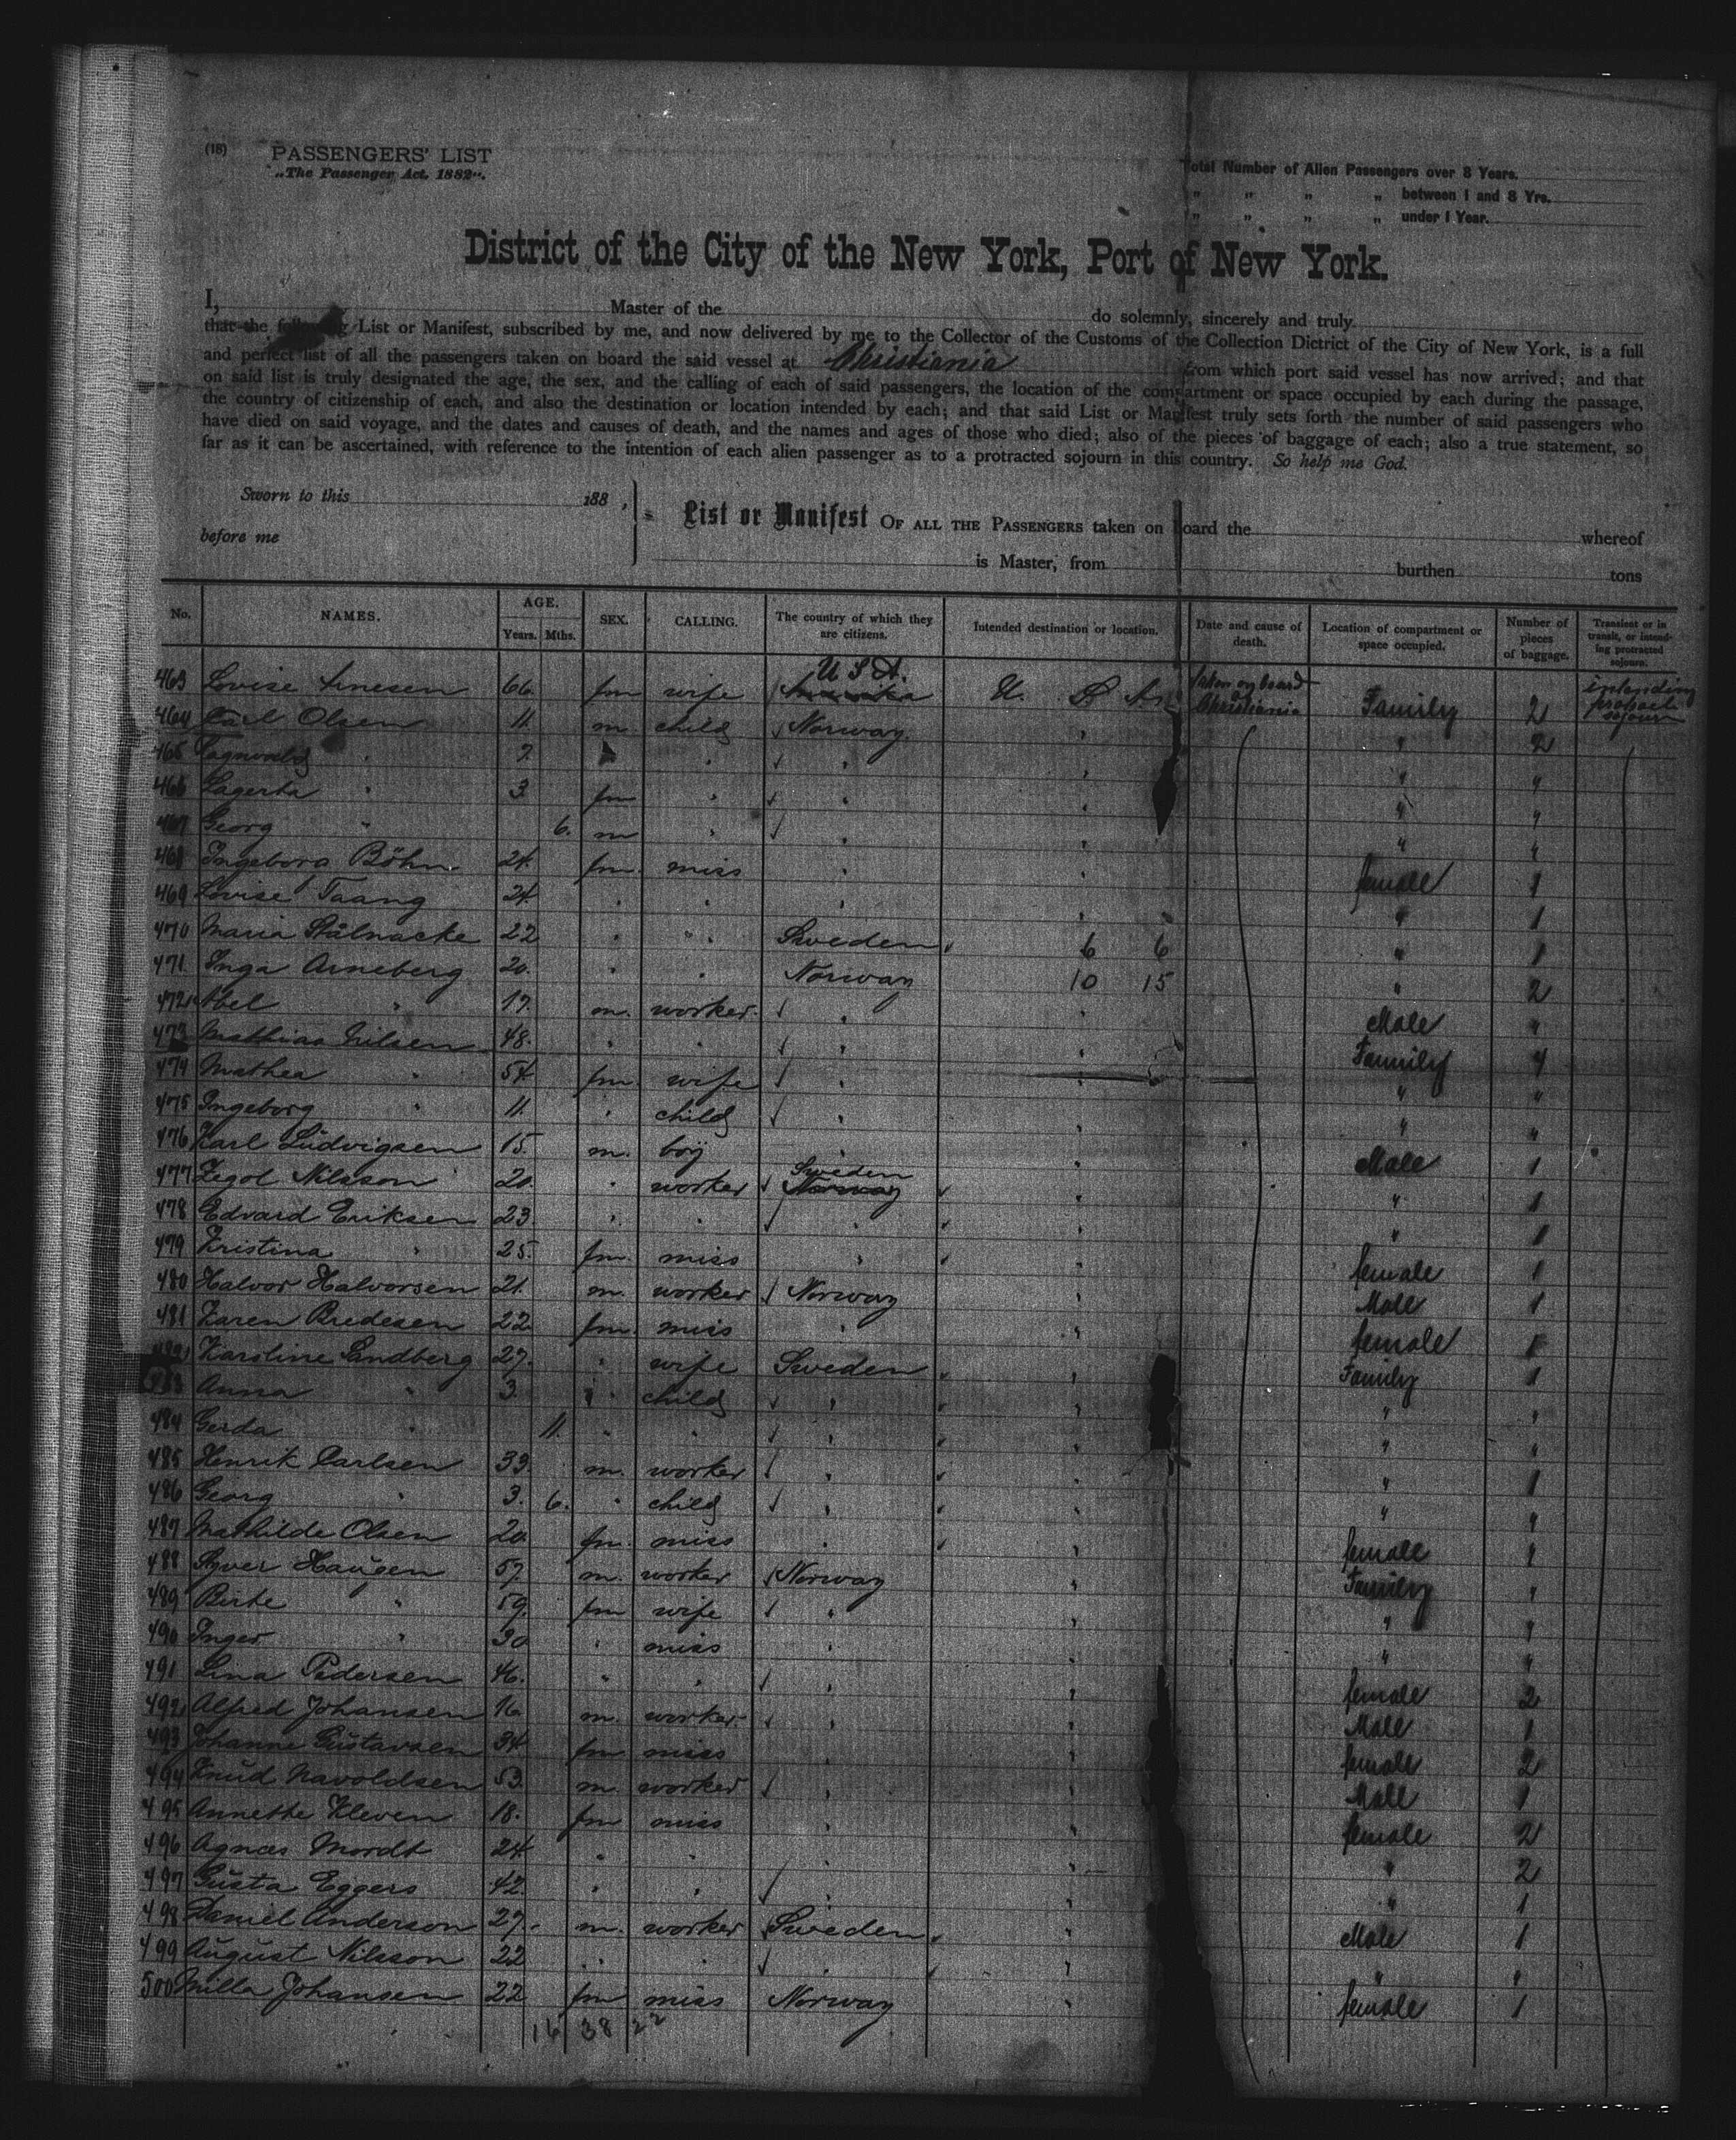 (18) PASSENGERS' LIST
„The Passenger Act. 1882".
Total Number of Alien Passengers over 8 Years.
" " " " between 1 and 8 Yrs.
" " " " under 1 Year.
District of the City of the New York, Port of New York.
I, Master of the do solemnly, sincerely and truly
that the following List or Manifest, subscribed by me, and now delivered by me to the Collector of the Customs of the Collection Dictrict of the City of New York, is a full
and perfect list of all the passengers taken on board the said vessel at Christiania from which port said vessel has now arrived; and that
on said list is truly designated the age, the sex, and the calling of each of said passengers, the location of the compartment or space occupied by each during the passage,
the country of citizenship of each, and also the destination or location intended by each; and that said List or Manifest truly sets forth the number of said passengers who
have died on said voyage, and the dates and causes of death, and the names and ages of those who died; also of the pieces of baggage of each; also a true statement, so
far as it can be ascertained, with reference to the intention of each alien passenger as to a protracted sojourn in this country. So help me God.
Sworn to this 188 ,
before me
List or Manifest OF ALL THE PASSENGERS taken on board the whereof
is Master, from burthen tons
No. NAMES. AGE. Years. Mths. SEX. CALLING. The country of which they are citizens. Intended destination or location. Date and cause of death. Location of compartment or space occupied. Number of pieces of baggage. Transient or in transit, or intending protracted sojourn.
463 Lovise 66 fm wife U S A. U. S. A. taken on board at Christiania Family 2 intending protract sojourn
464 Carl Olsen 11 m child Norway " " 2
465 " 7 " " " " "
466 Lagerta " 3 fm " " " " "
467 Georg " 6. m " " " " "
468 Ingeborg Böhn 24. fm. miss " " female 1
469 Lovise Taang 24 " " " " " 1
470 Maria Stålnacke 22 " " Sweden 6 6 " 1
471 Inga Arneberg 20. " " Norway 10 15 " 2
472 Abel " 17. m. worker " " Male "
473 Mathias Nilsen 48. " " " " Family 4
474 Mathea " 54 fm. wife " " " "
475 Ingeborg " 11. " child " " " "
476 Karl Ludvigsen 15. m. boy " " Male 1
477 Nilsson 20. " worker Sweden Norway " " 1
478 Edvard Eriksen 23. " " " " " 1
479 Kristina " 25. fm. miss " " female 1
480 Halvor Halvorsen 21. m. worker Norway " Male 1
481 Karen Bredesen 22 fm. miss " " female 1
482 Karoline Sandberg 27. " wife Sweden " Family 1
483 Anna " 3 " child " " " "
484 Gerda " 11. " " " " " "
485 Henrik Carlsen 33 m. worker " " " 1
486 Georg " 3. 6. " child " " " "
487 Mathilde Olsen 20. fm. miss " " female 1
488 Haugen 57. m. worker Norway " Family "
489 Birte " 59 fm wife " " " "
490 Inger " 30 " miss " " " "
491 Lina Pedersen 46. " " " " female 2
492 Alfred Johansen 16 m. worker " " Male 1
493 Johanne Gustavsen 34 fm miss " " female 2
494 Knud 53. m. worker " " Male 1
495 Annethe Kleven 18. fm miss " " female 2
496 Agnes Mordt 24 " " " " " 2
497 Gusta Eggers 42. " " " " " 1
498 Daniel Anderson 27. m. worker Sweden " Male 1
499 August Nilsson 22 " " " " " "
500 Milla Johansen 22 fm miss Norway " female 1
16 38 22